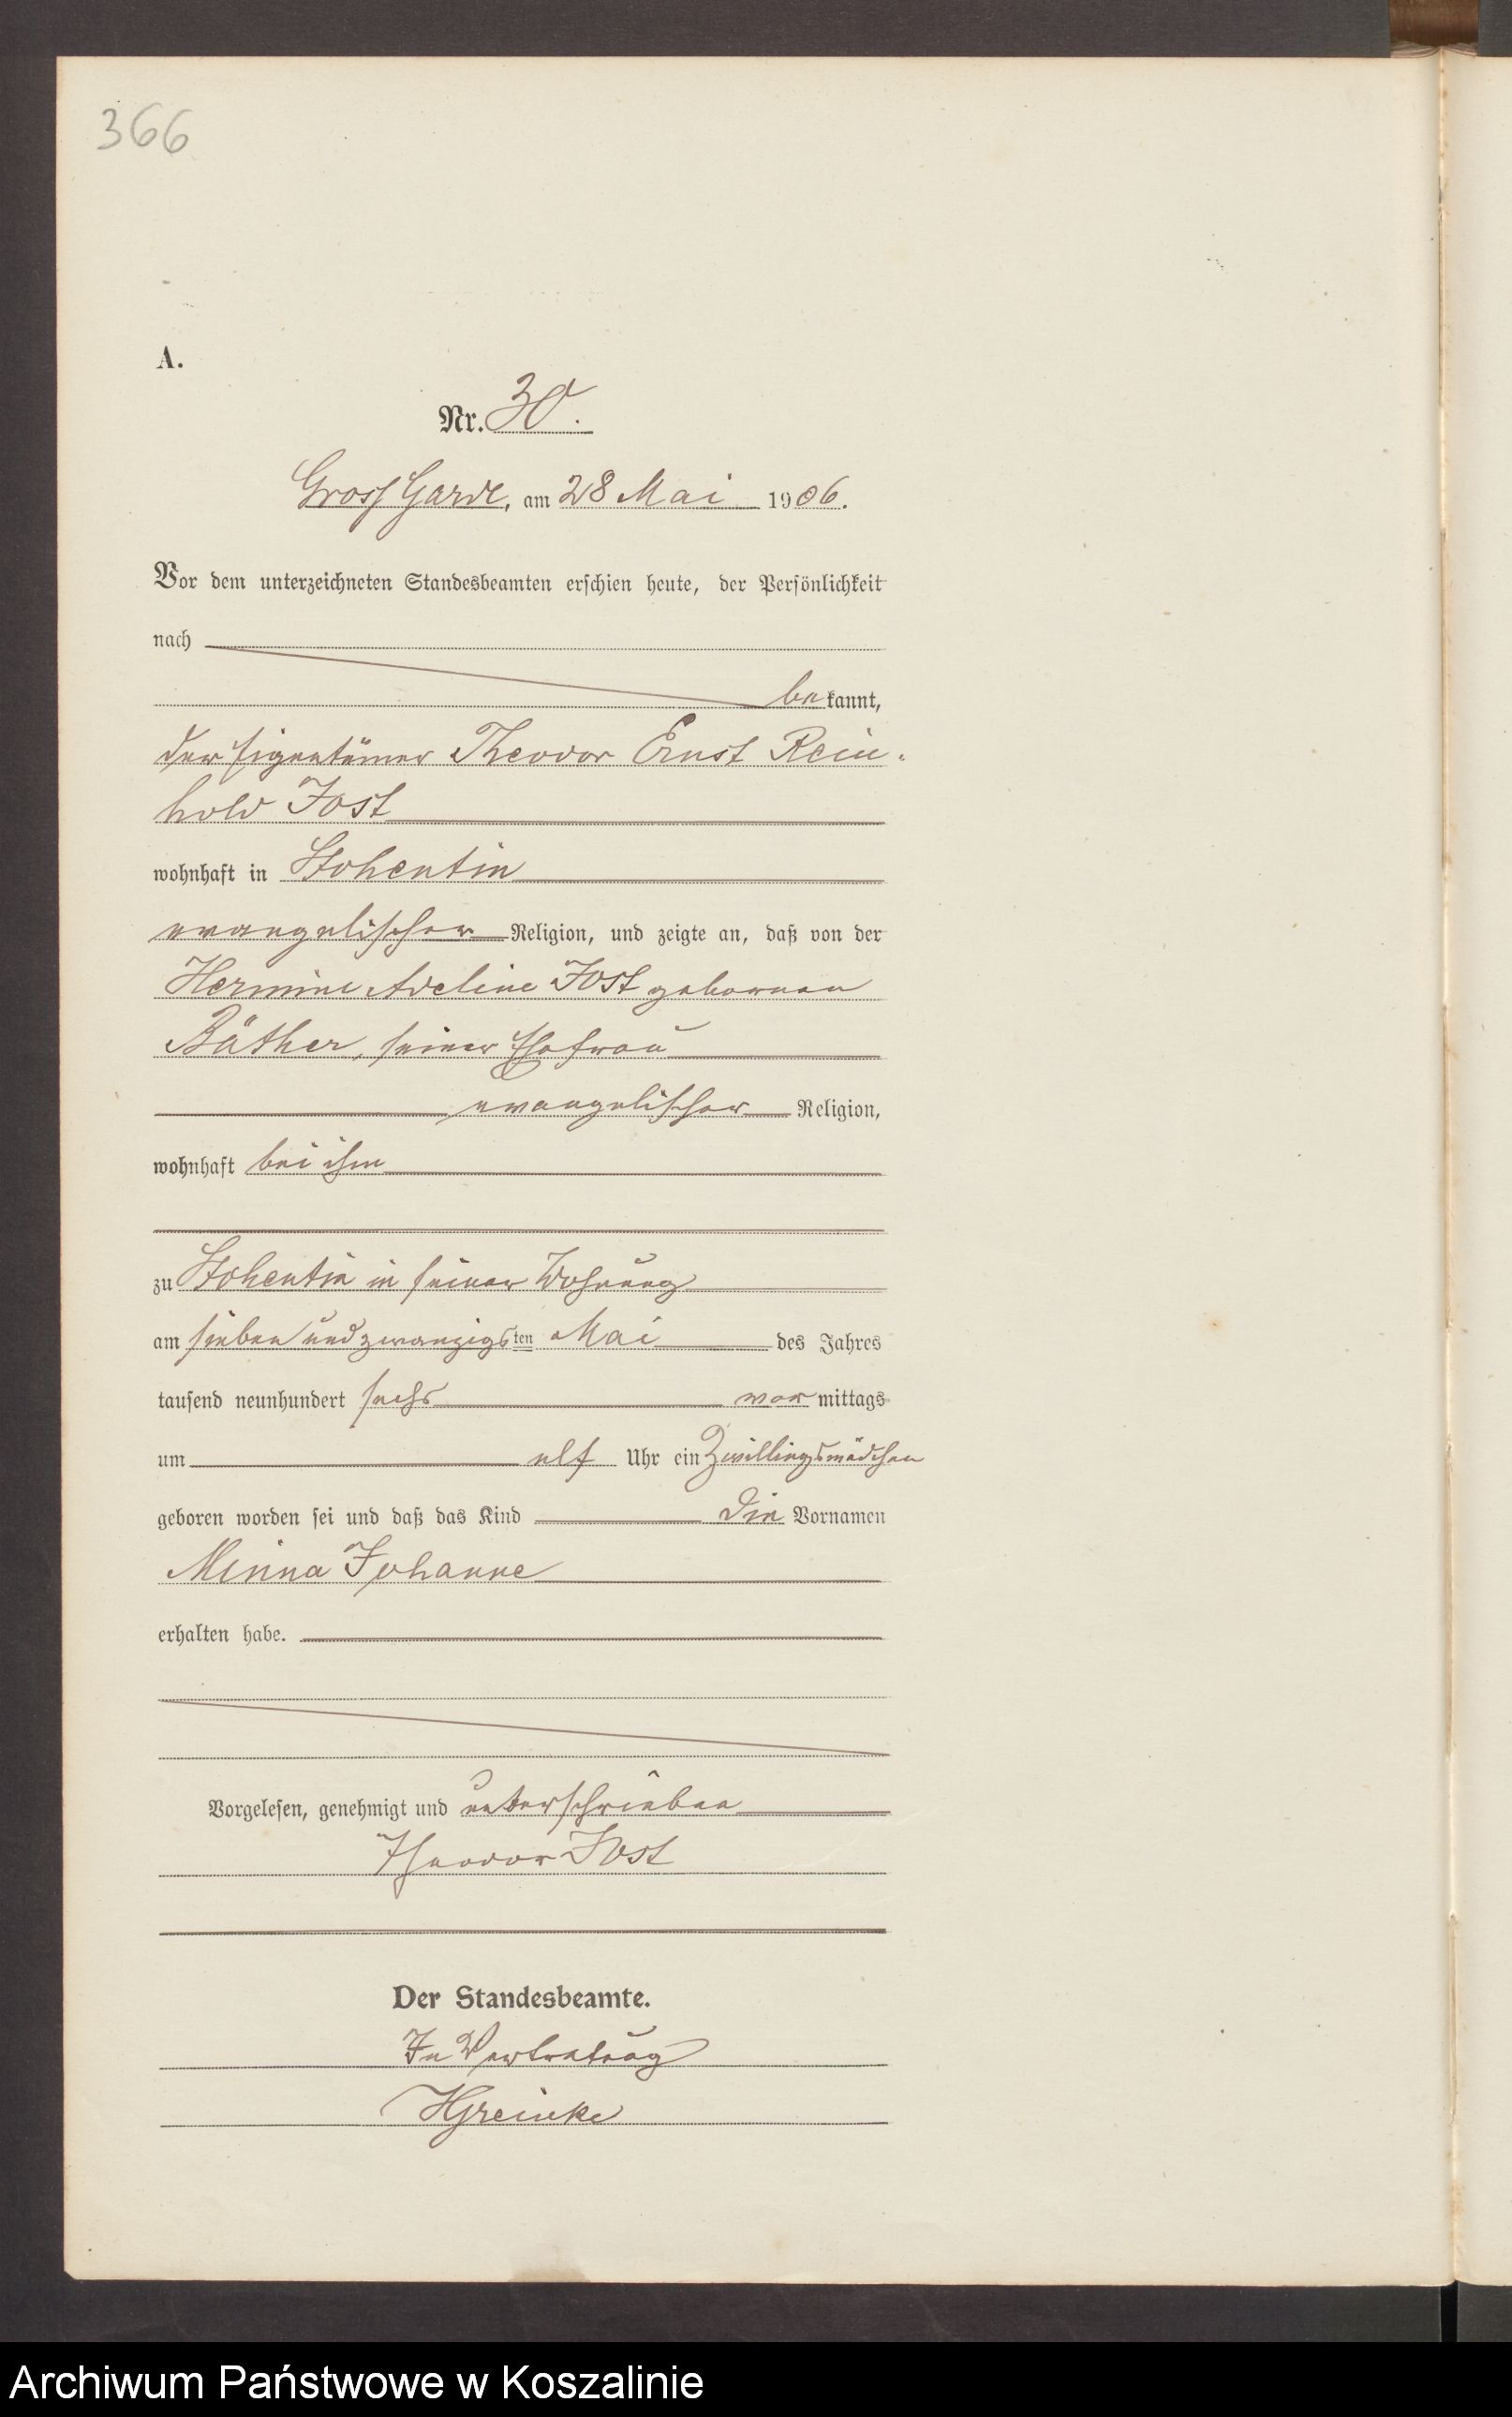 366
A.
Nr. 30.
Gross Garde, am 28 Mai 1906.
Vor dem unterzeichneten Standesbeamten erschien heute, der Persönlichkeit
nach
bekannt,
der Eigentümer Theodor Ernst Rein-
hold Jost
wohnhaft in Stohentin
evangelischer Religion, und zeigte an, daß von der
Hermine Adeline Jost geborenen
Räther, seiner Ehefrau
evangelischer Religion,
wohnhaft bei ihm
zu Stohentin in seiner Wohnung
am sieben und zwanzigsten Mai des Jahres
tausend neunhundert sechs vormittags
um elf Uhr ein Zwillingsmädchen
geboren worden sei und daß das Kind die Vornamen
Minna Johanne
erhalten habe.
Vorgelesen, genehmigt und unterschrieben
Theodor Jost
Der Standesbeamte.
In Vertretung
HGreinke
Archiwum Państwowe w Koszalinie